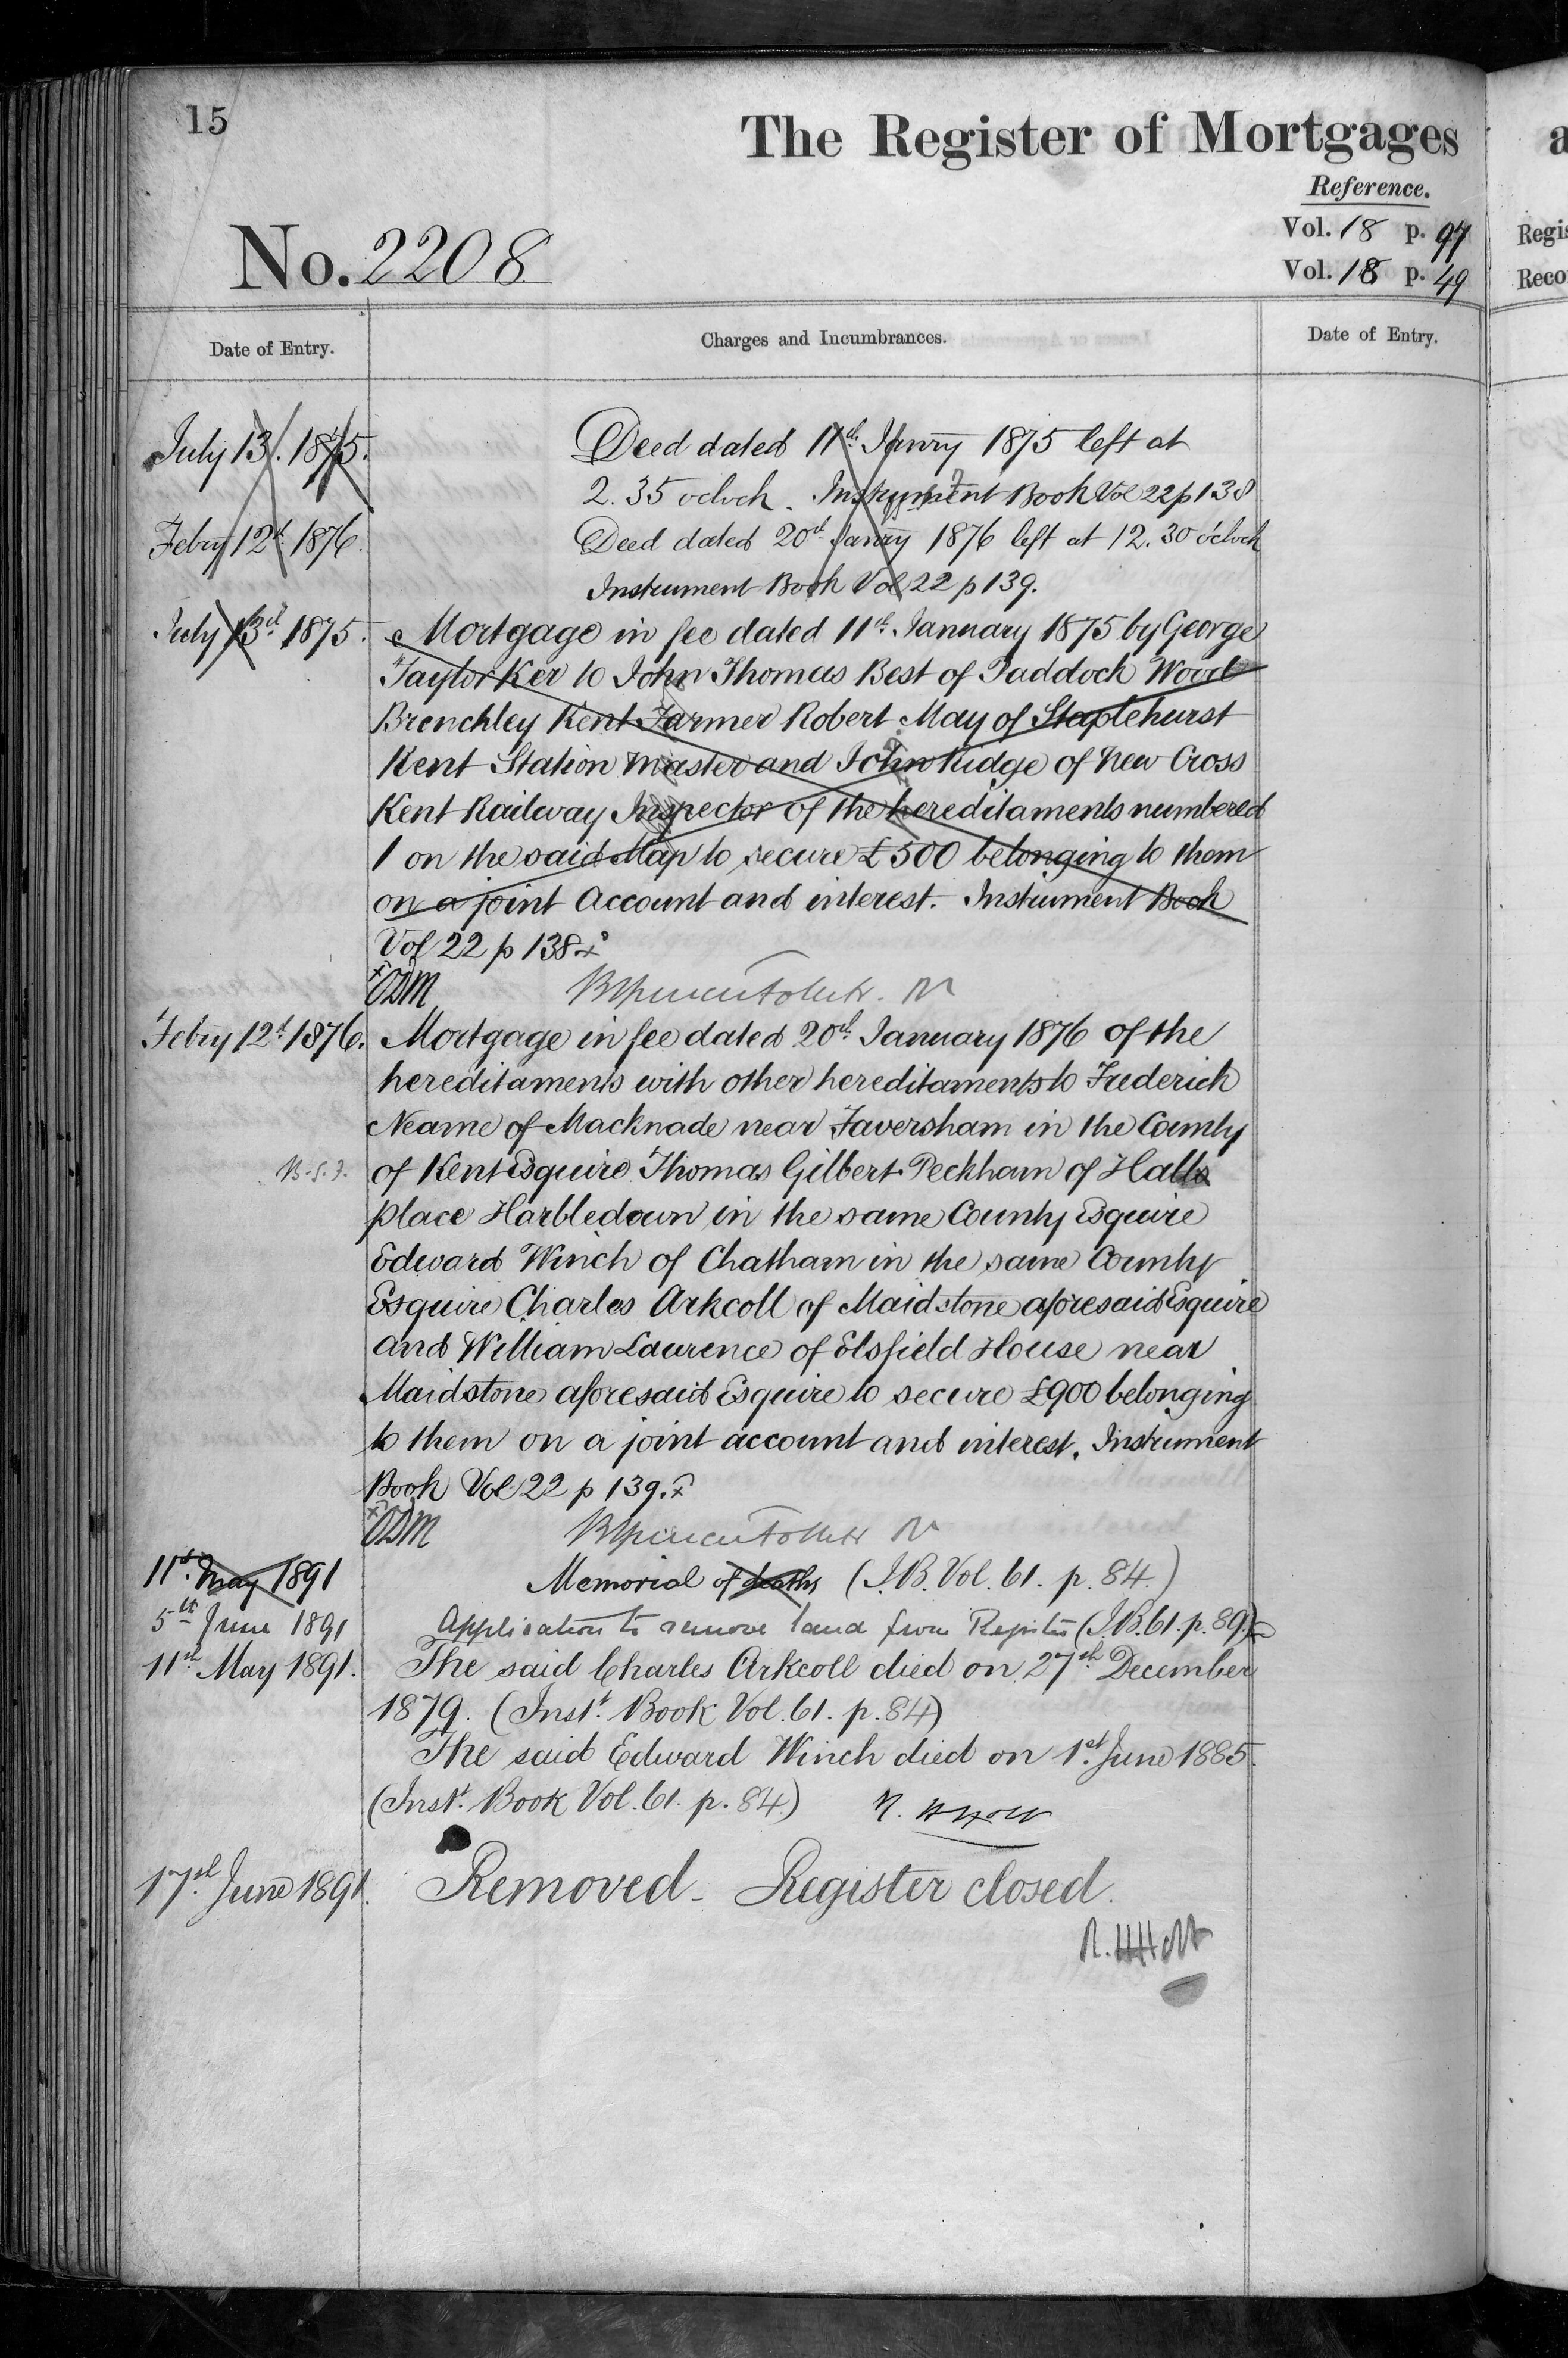 15
The Register of Mortgages
Reference.
Vol. 18 p. 97
Vol. 18 p. 49
No. 2208
Regis
Reco
Date of Entry.
Charges and Incumbrances.
Date of Entry.
July 13. 1875.
Deed dated 11th Janry 1875 left at
2.35 oclock. Instrument Book Vol 22 p 138
Febry 12th 1876.
Deed dated 20th Janry 1876 left at 12.30 o'clock
Instrument Book Vol 22 p 139.
July 13th 1875.
Mortgage in fee dated 11th January 1875 by George
Taylor Ker to John Thomas Best of Paddock Wood
Brenchley Kent Farmer Robert May of Staplehurst
Kent Station Master and John Ridge of New Cross
Kent Railway Inspector of the hereditaments numbered
1 on the said Map to secure £500 belonging to them
on a joint Account and interest. Instrument Book
Vol 22 p 138.x
Febry 12th 1876.
Mortgage in fee dated 20th January 1876 of the
hereditaments with other hereditaments to Frederick
Neame of Macknade near Faversham in the County
of Kent Esquire Thomas Gilbert Peckham of Halls
place Harbledown in the same County Esquire
Edward Winch of Chatham in the same County
Esquire Charles Arkcoll of Maidstone aforesaid Esquire
and William Laurence of Elsfield House near
Maidstone aforesaid Esquire to secure £900 belonging
to them on a joint account and interest. Instrument
Book Vol 22 p 139.x
11th May 1891
Memorial of deaths (I.B. Vol. 61. p. 84.)
5th June 1891
Application to remove land from Register (I.B. 61. p. 89.)
11th May 1891.
The said Charles Arkcoll died on 27th December
1879. (Inst. Book Vol. 61. p. 84)
The said Edward Winch died on 1st June 1885.
(Inst. Book Vol. 61. p. 84.)
17th June 1891.
Removed - Register closed.